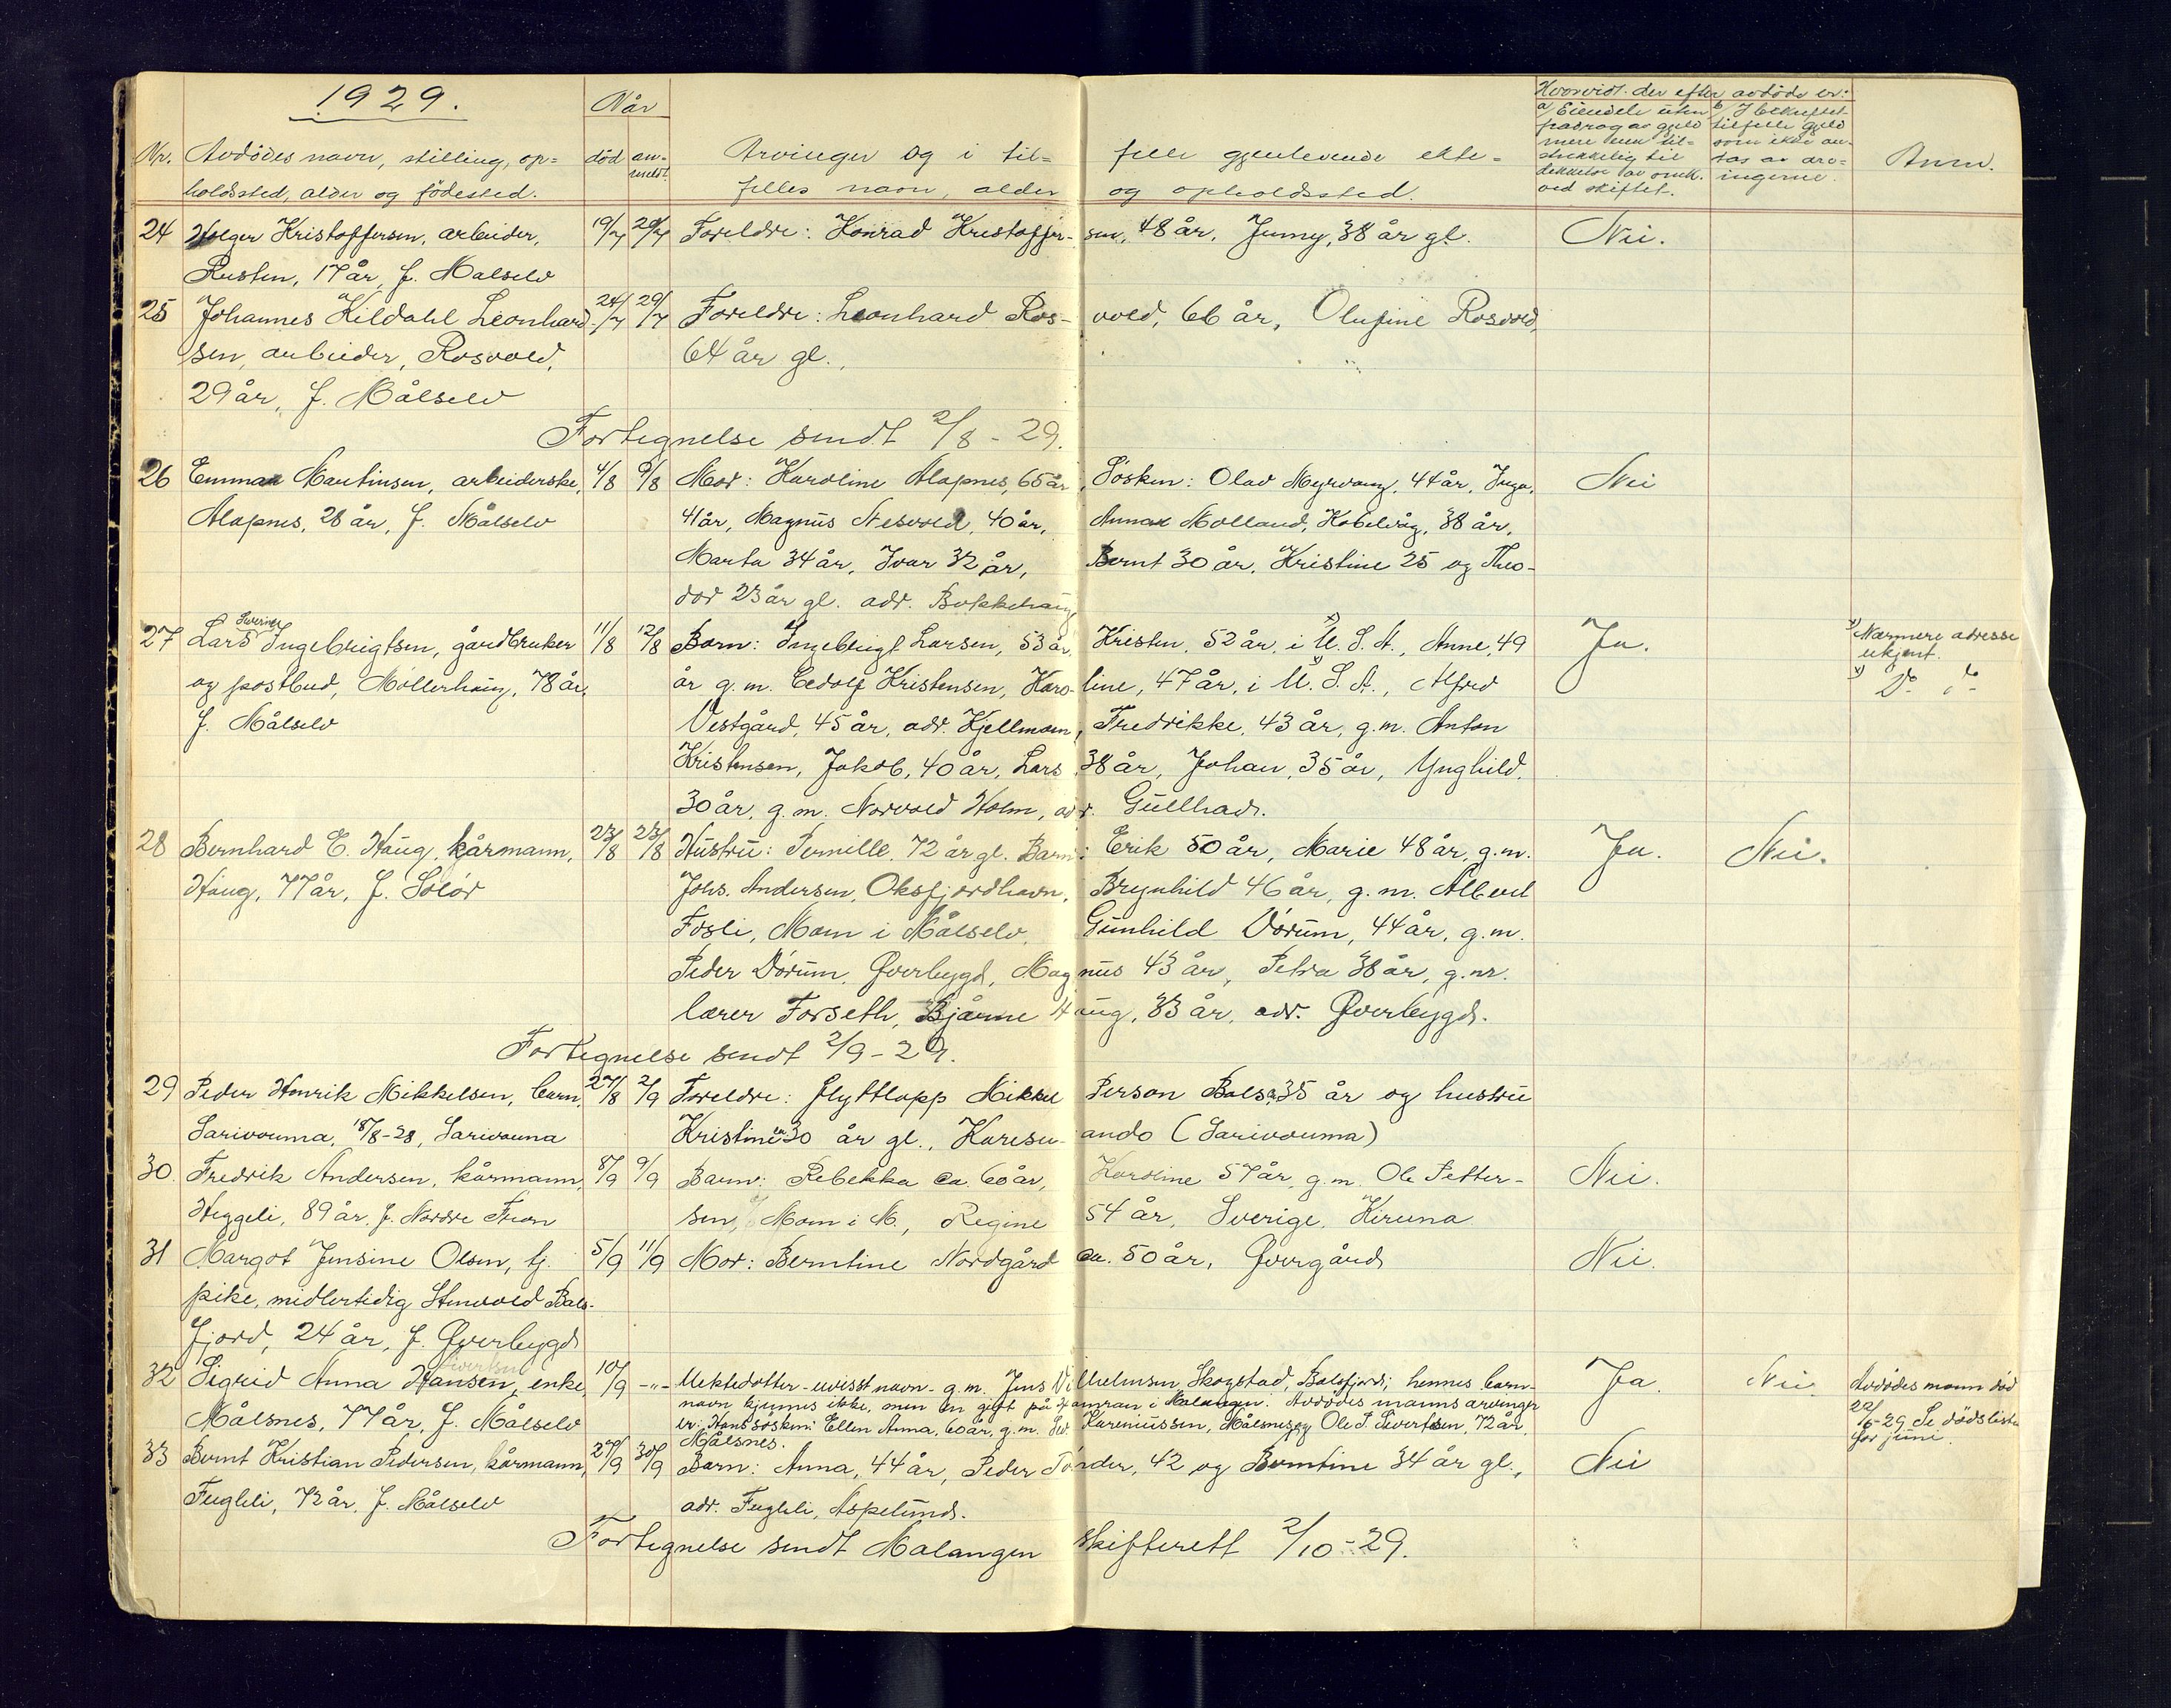 1929.
Når
Hvorvidt der efter avdøde er:
a) Eiendele uten fradrag av gjeld mere enn tilstrekkelig til dekkelse av omk. ved skiftet.
b) I bekreftet tilfelle gjeld som ikke antas av arvingerne.
Nr. Avdødes navn, stilling, op= død an= Arvinger og i til= felle gjenlevende ekte= Anm.
holdssted, alder og fødested. meldt felles navn, alder og opholdssted.
24 Holger Kristoffersen, arbeider, 19/7 29/7 Foreldre: Konrad Kristoffer- sen, 48 år, Jenny, 38 år gl. Nei.
Rusten, 17 år, f. Målselv
25 Johannes Kildahl Leonhard- 24/7 29/7 Foreldre: Leonhard Ros- vold, 66 år, Olufine Rosvold,
sen, arbeider, Rosvold, 64 år gl.
29 år, f. Målselv
Fortegnelse sendt 2/8 - 29.
26 Emma Martinsen, arbeiderske, 4/8 9/8 Mor: Karoline Alapnes, 65 år, Søsken: Olav Myrvang, 44 år, Inga, Nei
Alapnes, 28 år, f. Målselv 41 år, Magnus Nesvold, 40 år, Anna Molland, Kobelvåg, 38 år,
Marta 34 år, Ivar 32 år, Bernt 30 år, Kristine 25 og Theo-
dor 23 år gl. adr. Bakkehaug
27 Lars Ingebrigtsen, gårdbruker 11/8 12/8 Barn: Ingebrigt Larsen, 53 år, Kristen, 52 år, i x) U. S. A., Anne, 49 Ja. x) Nærmere adresse
og postbud, Møllerhaug, 78 år, år g.m. Edolf Kristensen, Karo- line, 47 år, i U. S. A., Alfred ukjent.
f. Målselv Vestgård, 45 år, adr. Kjellmoen, Fredrikke, 43 år, g.m. Anton
Kristensen, Jakob, 40 år, Lars 38 år, Johan, 35 år, Ynghild,
30 år, g.m. Norvald Holm, adr. Gullhav.
28 Bernhard E. Haug, kårmann, 23/8 23/8 Hustru: Pernille, 72 år gl. Barn: Erik 50 år, Marie 48 år, g.m. Ja. Nei.
Haug, 77 år, f. Solør Johs. Andersen, Oksfjordhavn, Brynhild 46 år, g.m. Albert
Fosli, Moen i Målselv, Gunhild Vårum, 44 år, g.m.
Peder Vårum, Øverbygd, Magnus 43 år, Petra 38 år, g.m.
lærer Forseth, Bjarne Haug, 33 år, adr. Øverbygd.
Fortegnelse sendt 2/9 - 29.
29 Peder Henrik Mikkelsen, barn, 27/8 2/9 Foreldre: flyttlapp Mikkel Person Balsa, 35 år og hustru
Sarivouma, 18/8-28, Sarivouna Kristine ca 30 år gl., Karesu- ando (Sarivouma)
30. Fredrik Andersen, kårmann, 8/9 9/9 Barn: Rebekka ca. 60 år, Karoline 57 år, g.m. Ole Petter- Nei.
Heggeli, 89 år, f. Nordre Fron sen, Moen i M., Regine 54 år, Sverige, Kiruna
31 Margot Jensine Olsen, tj. 5/9 11/9 Mor: Berntine Nordgård ca. 50 år, Øvergård Nei.
pike, midlertidig Stenvold Bals-
fjord, 24 år, f. Øverbygd
32 Sigrid Anna Hansen, enke 10/9 -"- Uektedatter - uvisst navn - g.m. Jens Vilhelmsen Skogstad, Balsfjord; hennes barn- Ja. Nei. Avdødes mann død
Målsnes, 77 år, f. Målselv navn kjennes ikke, men en gift på i Malangen. Avdødes manns arvinger 22/6-29 Se dødsliste
er: Hans søsken: Ellen Anna, 60 år, g.m. Kareniussen, Målsnes, og Ole P. Sivertsen, 72 år, for juni.
Målsnes.
33 Bernt Kristian Pedersen, kårmann, 27/9 30/9 Barn: Anna, 44 år, Peder Tønder, 42 og Berntine 34 år gl., Nei
Fugleli, 72 år, f. Målselv adr. Fugleli, Aspelund.
Fortegnelse sendt Malangen skifterett 2/10 - 29.